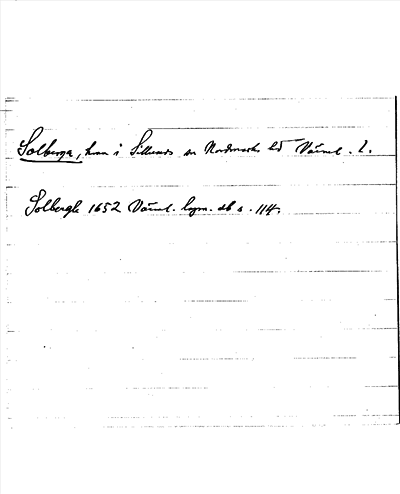 Solberga, kvn i Silleruds sn Nordmarks hd Värml. l.
Solbergh 1652 Värml. lagm. db s. 114.